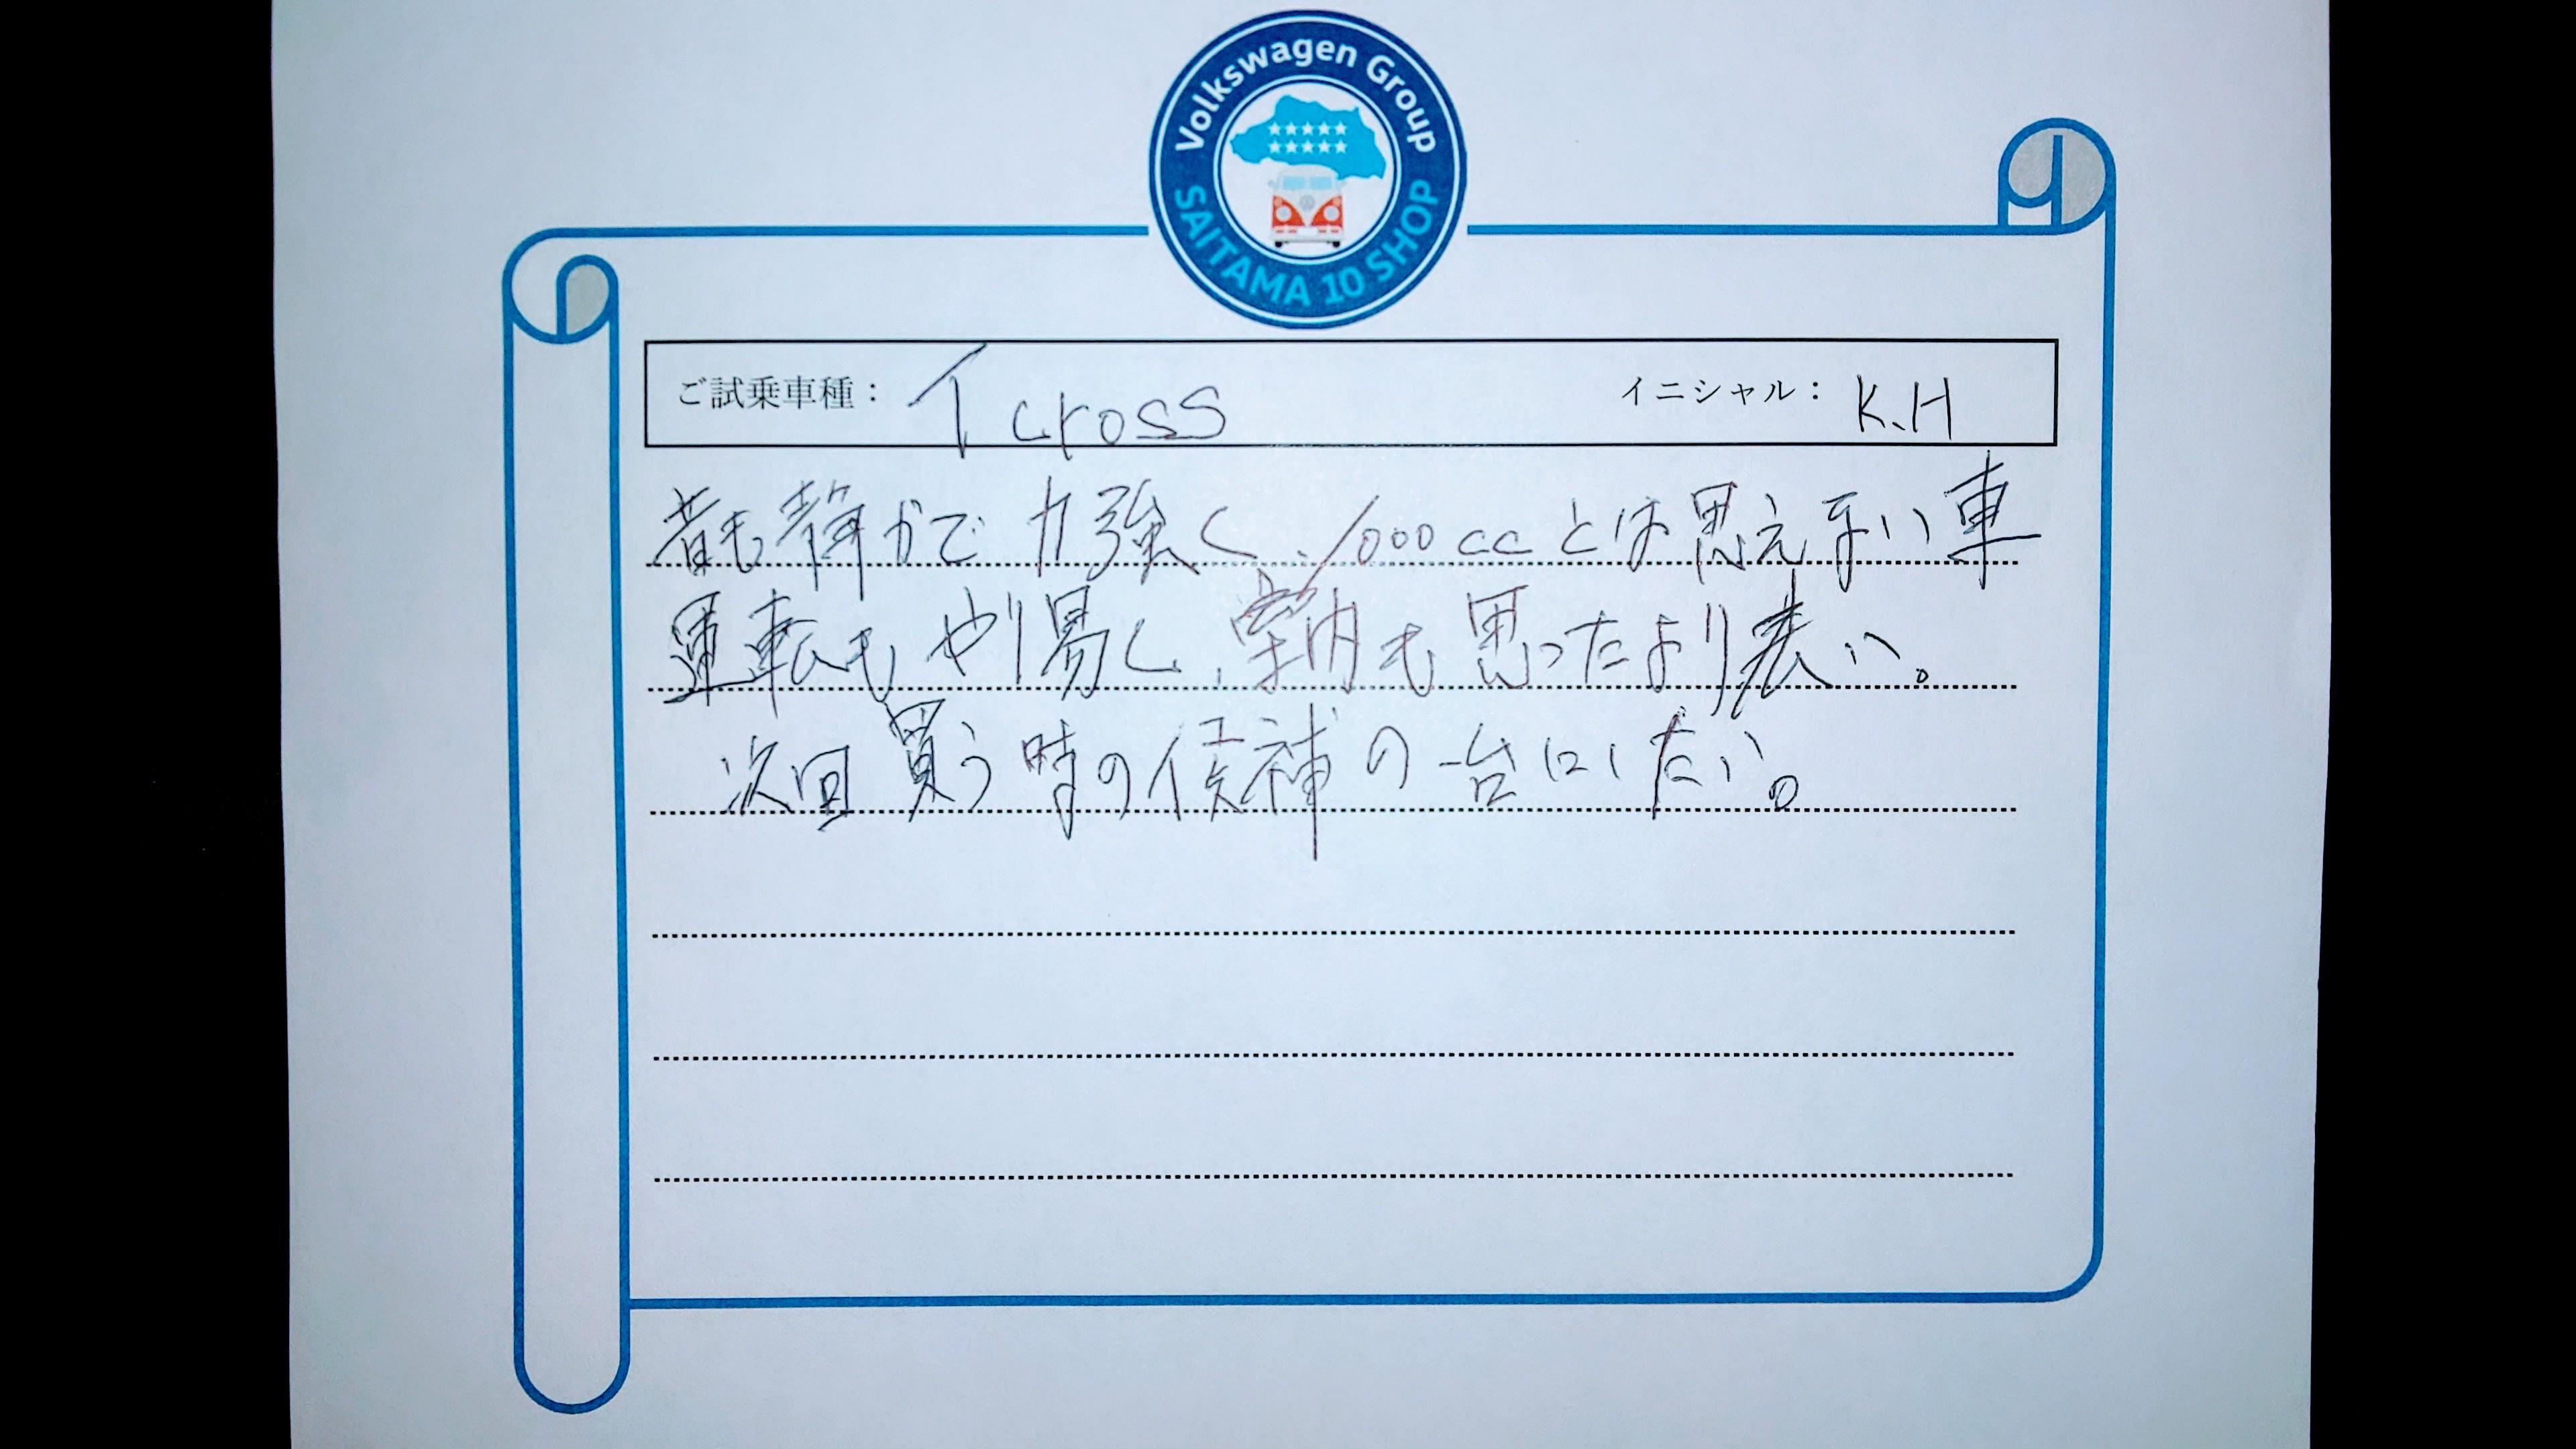 Volkswagen Group
SAITAMA 10 SHOP
ご試乗車種： T cross イニシャル： K.H
音も静かで力強く、1000ccとは思えない車
運転もやり易く、室内も思ったより長い。
次回買う時の候補の一台にしたい。